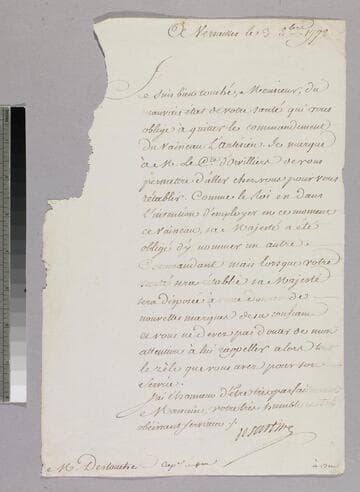 A Versailles le 3 8bre 1778
Je suis bien touché, Monsieur, du
mauvais état de votre santé qui vous
oblige à quitter le commandement
du Vaisseau L'artésien. Je marque
à M. Le Cte. d'Orvilliers de vous
permettre d'aller chez vous pour vous
rétablir. Comme le Roi est dans
l'intention d'employer en ce moment
ce Vaisseau, sa Majesté a été
obligé d'y nommer un autre
Commandant mais lorsque votre
santé sera établie sa Majesté
sera disposée à vous donner de
nouvelles marques de sa confiance
et vous ne devez pas douter de mon
attention à lui rappeller alors tout
le zèle que vous avez pour son
service.
J'ai l'honneur d'être très parfaitement
Monsieur, votre très humble et très
obéissant serviteur ./.
de Sartine
M. Destouches Capne. de Vau